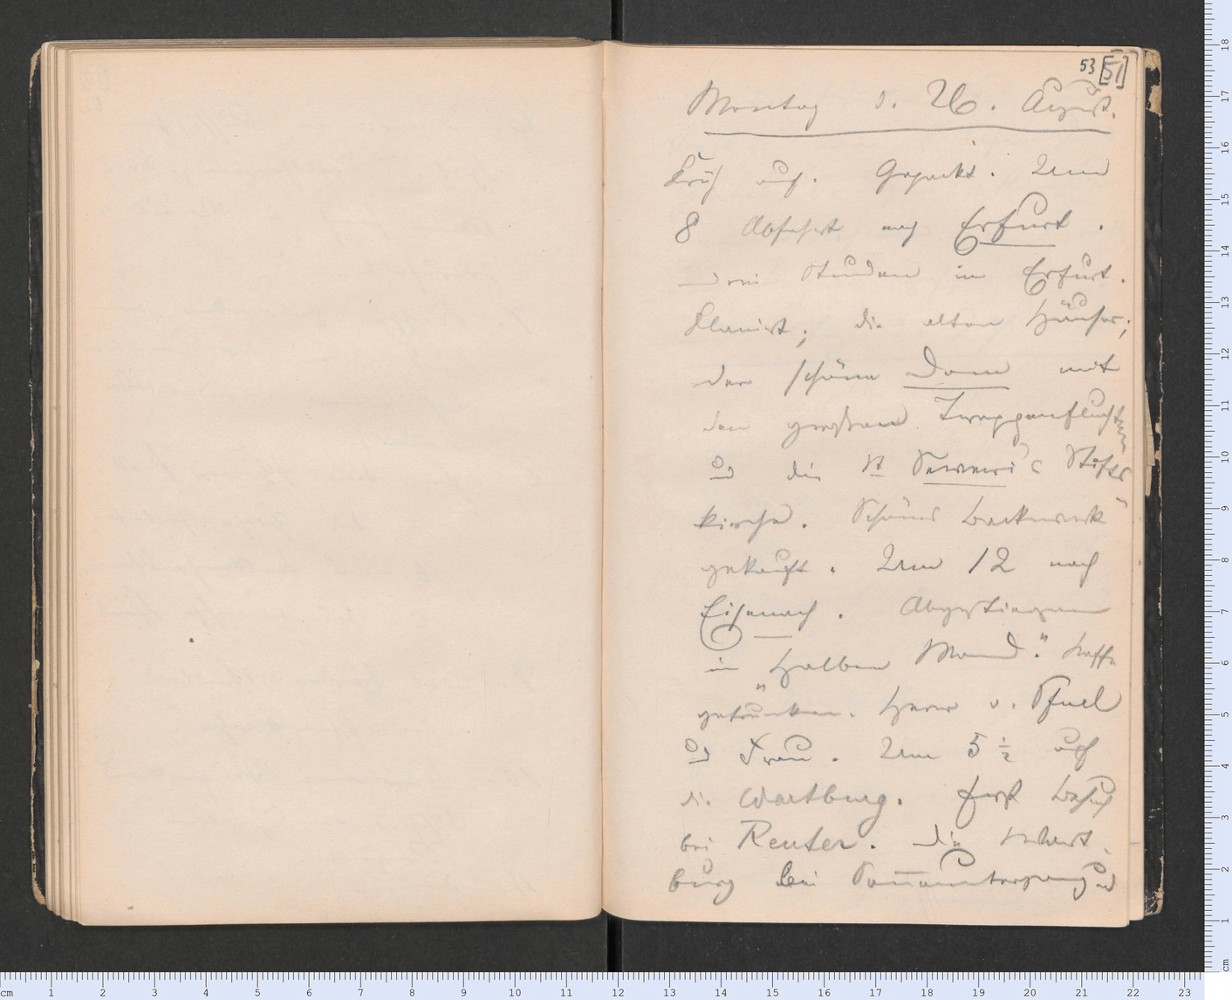 53 [51]
Montag d. 26. August.
Früh auf. Gepackt. Um
8 Abfahrt nach Erfurt.
drei Stunden in Erfurt.
flanirt; die alten Häuser;
der schöne Dom mit
den großen Treppenfluchten
u die St Severi's Stifts-
kirche. Schönes Backwerk
gekauft. Um 12 nach
Eisenach. Abgestiegen
im „Halben Mond". Kaffe
getrunken. Herr v. Pfuel
u Frau. Um 5 ½ auf
die Wartburg. Erst Besuch
bei Reuter. Die Wart-
burg bei Sonnenuntergang u